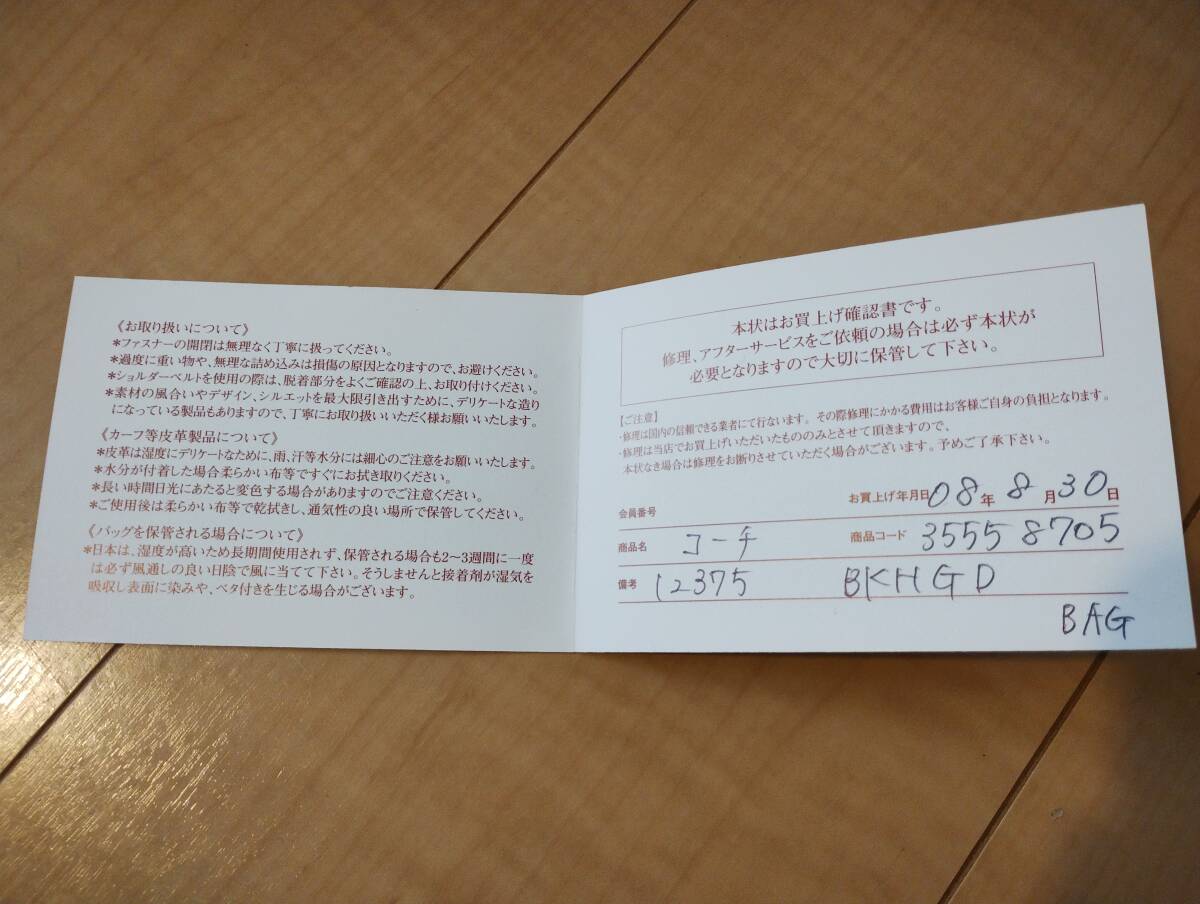 《お取り扱いについて》
*ファスナーの開閉は無理なく丁寧に扱ってください。
*過度に重い物や、無理な詰め込みは損傷の原因となりますので、お避けください。
*ショルダーベルトを使用の際は、脱着部分をよくご確認の上、お取り付けください。
*素材の風合いやデザイン、シルエットを最大限引き出すために、デリケートな造り
になっている製品もありますので、丁寧にお取り扱いいただく様お願いいたします。
《カーフ等皮革製品について》
*皮革は湿度にデリケートなために、雨、汗等水分には細心のご注意をお願いいたします。
*水分が付着した場合柔らかい布等ですぐにお拭き取りください。
*長い時間日光にあたると変色する場合がありますのでご注意ください。
*ご使用後は柔らかい布等で乾拭きし、通気性の良い場所で保管してください。
《バッグを保管される場合について》
*日本は、湿度が高いため長期間使用されず、保管される場合も2〜3週間に一度
は必ず風通しの良い日陰で風に当てて下さい。そうしませんと接着剤が湿気を
吸収し表面に染みや、ベタ付きを生じる場合がございます。
本状はお買上げ確認書です。
修理、アフターサービスをご依頼の場合は必ず本状が
必要となりますので大切に保管して下さい。
【ご注意】
・修理は国内の信頼できる業者にて行ないます。その際修理にかかる費用はお客様ご自身の負担となります。
・修理は当店でお買上げいただいたもののみとさせて頂きますので、
本状なき場合は修理をお断りさせていただく場合がございます。予めご了承下さい。
会員番号 お買上げ年月日 08年 8月 30日
商品名 コーチ 商品コード 35558705
備考 12375 BKHGD
BAG